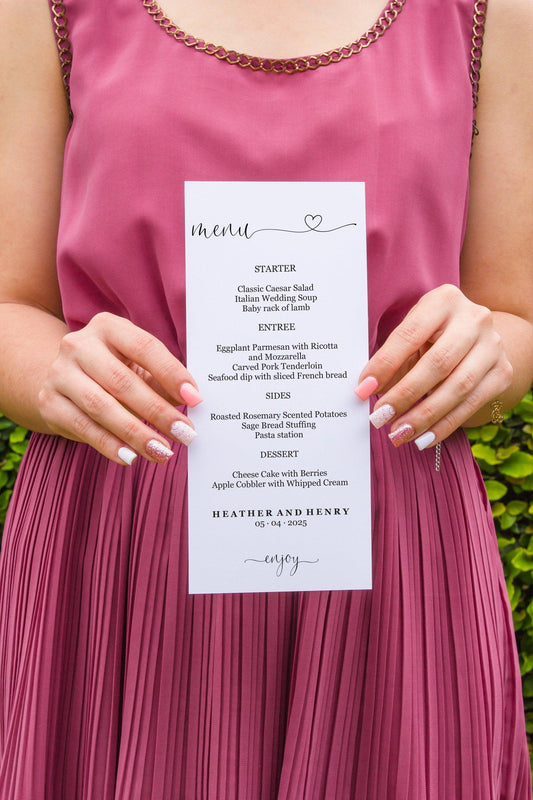 menu
STARTER
Classic Caesar Salad
Italian Wedding Soup
Baby rack of lamb
ENTREE
Eggplant Parmesan with Ricotta
and Mozzarella
Carved Pork Tenderloin
Seafood dip with sliced French bread
SIDES
Roasted Rosemary Scented Potatoes
Sage Bread Stuffing
Pasta station
DESSERT
Cheese Cake with Berries
Apple Cobbler with Whipped Cream
HEATHER AND HENRY
05 · 04 · 2025
enjoy